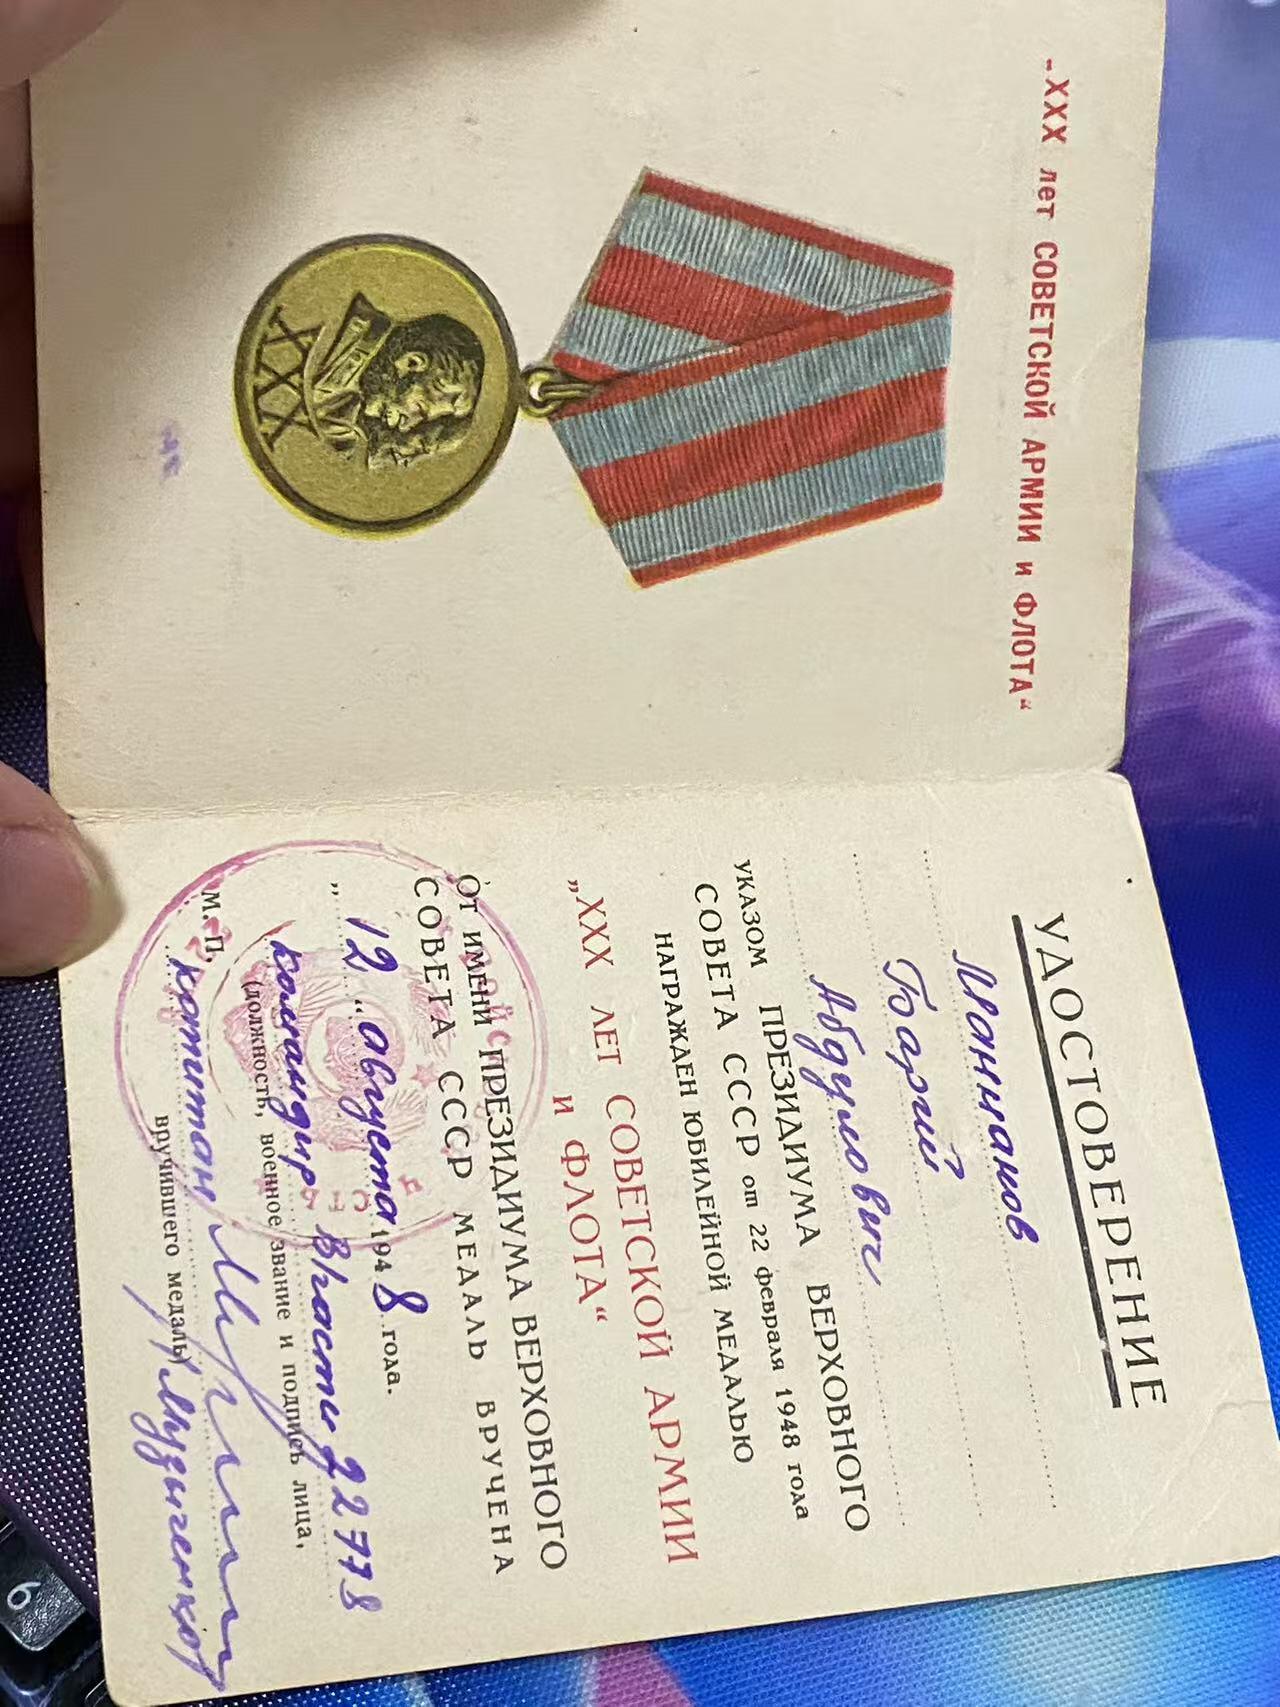 „XXX лет СОВЕТСКОЙ АРМИИ и ФЛОТА“
XXX
УДОСТОВЕРЕНИЕ
Маннанов
Барый
Абдулович
УКАЗОМ ПРЕЗИДИУМА ВЕРХОВНОГО
СОВЕТА СССР от 22 февраля 1948 года
НАГРАЖДЕН ЮБИЛЕЙНОЙ МЕДАЛЬЮ
„XXX ЛЕТ СОВЕТСКОЙ АРМИИ
И ФЛОТА“
ОТ ИМЕНИ ПРЕЗИДИУМА ВЕРХОВНОГО
СОВЕТА СССР МЕДАЛЬ ВРУЧЕНА
„12“ августа 1948 года.
командир В/части 22778
(должность, военное звание и подпись лица,
М. П. капитан
вручившего медаль)
6